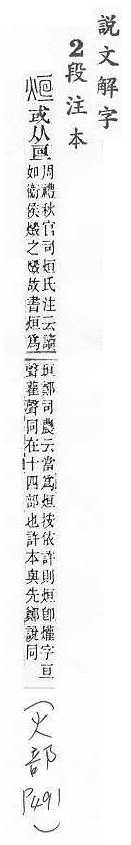 説文解字
2段注本
烜或从亘
周禮秋官司烜氏注云讀
如衞侯燬之燬故書烜爲
垣鄭司農云當爲烜按依許則烜卽爟字亘
聲雚聲同在十四部也許本與先鄭說同
(火部
P491)